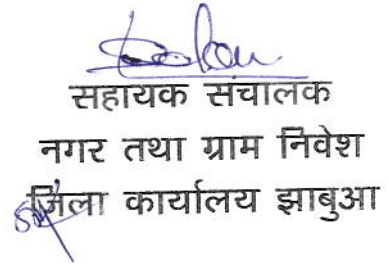 सहायक संचालक
नगर तथा ग्राम निवेश
जिला कार्यालय झाबुआ